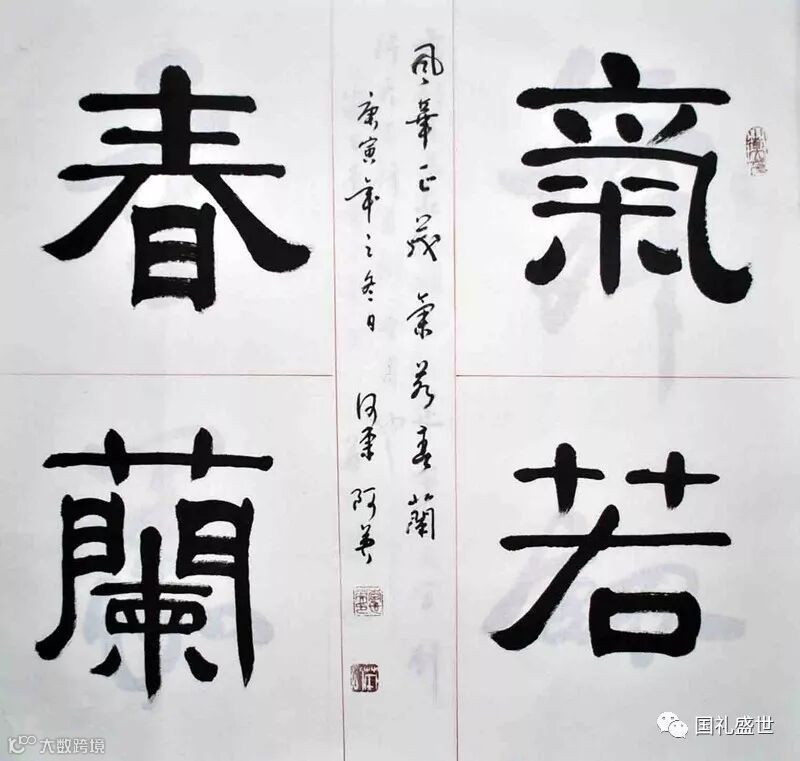 氣若
春蘭
风華正茂 氣若春蘭
庚寅年之冬日 阿英
国礼盛世
大数跨境